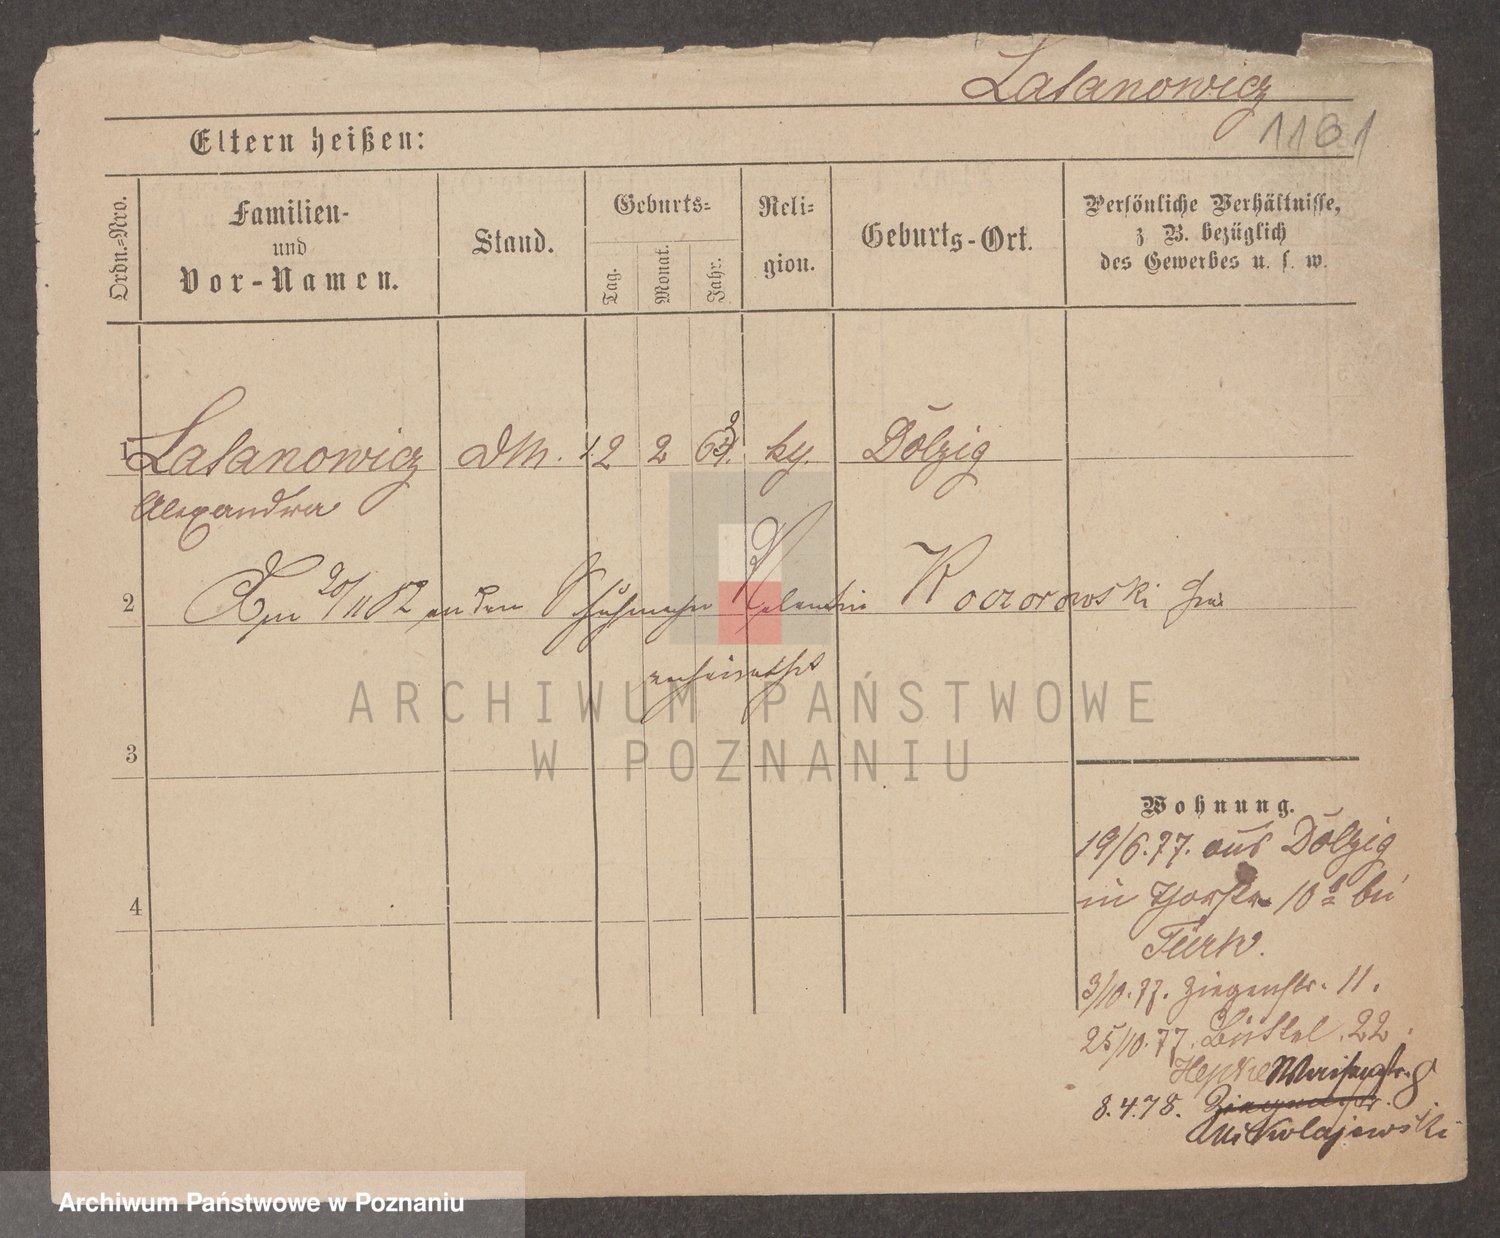 Lasanowicz
1161
Eltern heißen:
Ordn.=Nro.
Familien-
und
Vor-Namen.
Stand.
Geburts=
Tag.
Monat.
Jahr.
Reli=
gion.
Geburts-Ort.
Persönliche Verhältnisse,
z B. bezüglich
des Gewerbes u. s. w.
1 Lasanowicz DM. 12 2 63. kg. Dolzig
Alexandra
2 Am 20/11 82 an den Schuhmacher Valentin Koczorowski hier
verheirathet
3
4
Wohnung.
19/6.77. aus Dolzig
in Thorstr. 10 a bei
Türk.
3/10.77. Ziegenstr. 11.
25/10.77. Büttel. 22.
Hepke Waisenstr. 8
8.4.78. Ziegenstr.
Nikolajewski
ARCHIWUM PAŃSTWOWE
W POZNANIU
Archiwum Państwowe w Poznaniu